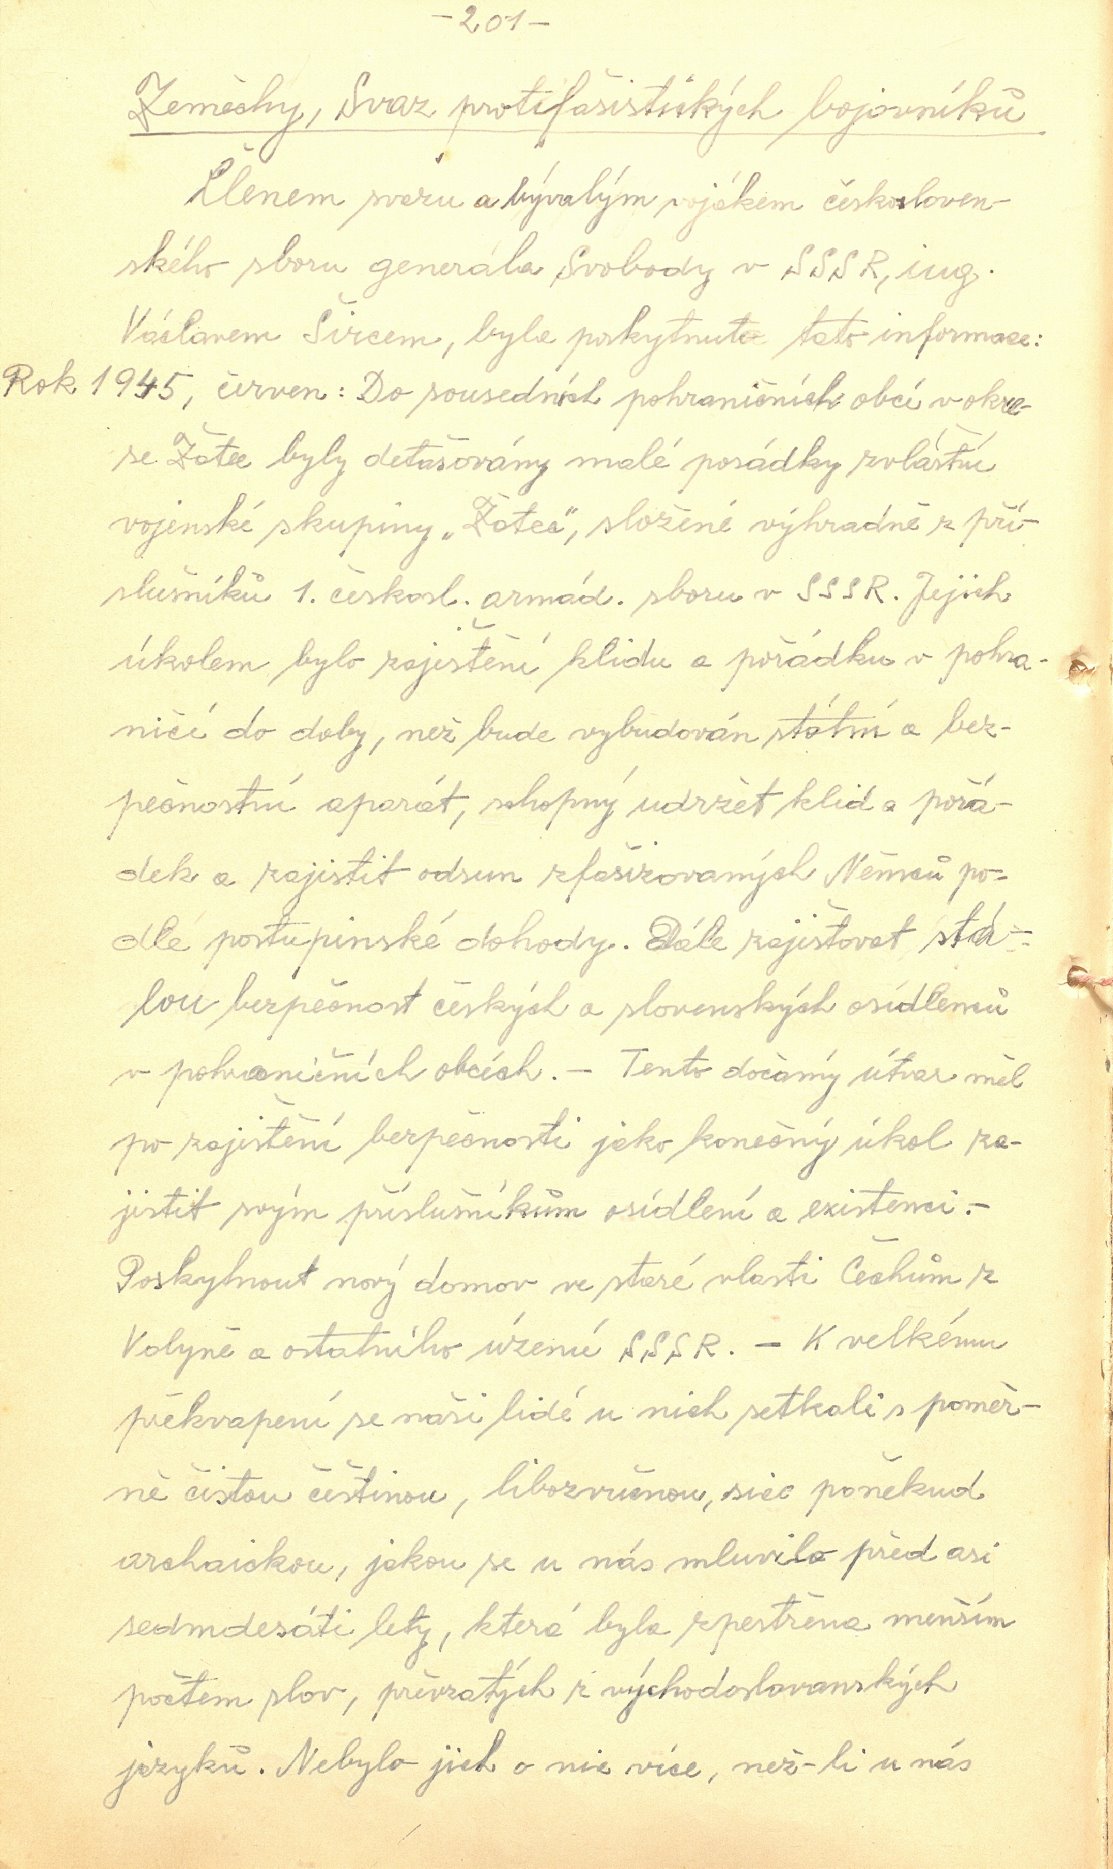 -201-
Zeměchy, Svaz protifašistických bojovníků
Členem svazu a bývalým vojákem českosloven-
ského sboru generála Svobody v SSSR, ing.
Václavem Šircem, byla poskytnuta tato informace:
Rok 1945, červen: Do sousedních pohraničních obcí v okre-
se Žatec byly detašovány malé posádky zvláštní
vojenské skupiny „Žatec", složené výhradně z pří-
slušníků 1. českosl. armád. sboru v SSSR. Jejich
úkolem bylo zajištění klidu a pořádku v pohra-
ničí do doby, než bude vybudován státní a bez-
pečnostní aparát, schopný udržet klid a pořá-
dek a zajistit odsun zfašizovaných Němců po-
dle postupinské dohody. Dále zajišťovat stá-
lou bezpečnost českých a slovenských osídlenců
v pohraničních obcích. - Tento dočasný útvar měl
po zajištění bezpečnosti jako konečný úkol za-
jistit svým příslušníkům osídlení a existenci. -
Poskytnout nový domov ve staré vlasti Čechům z
Volyně a ostatního území SSSR. - K velkému
překvapení se naši lidé u nich setkali s poměr-
ně čistou češtinou, libozvučnou, sice poněkud
archaickou, jakou se u nás mluvilo před asi
sedmdesáti lety, která byla zpestřena menším
počtem slov, převzatých z východoslovanských
jazyků. Nebylo jich o nic více, než-li u nás